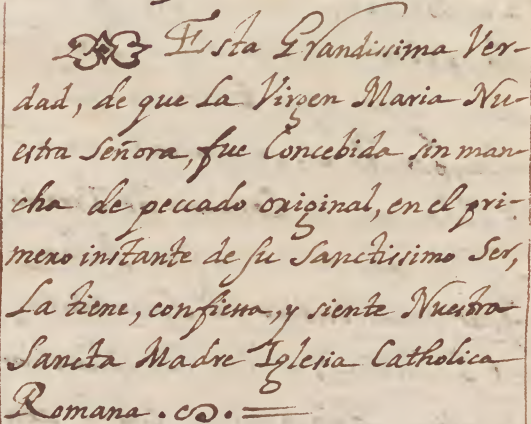 Esta Grandissima Ver-
dad, de que La Virgen Maria Nu-
estra Señora, fue Concebida sin man-
cha de peccado original, en el pri-
mero instante de su Sanctissimo Ser,
La tiene, confiessa, y siente Nuestra
Sancta Madre Iglesia Catholica
Romana.